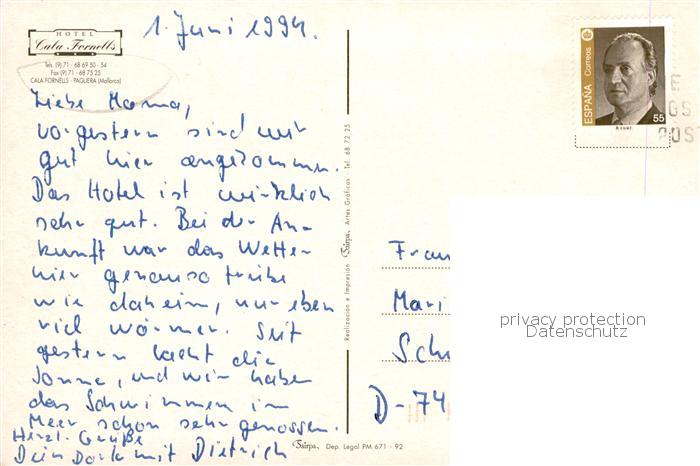 HOTEL
Cala Fornells
Tels. (9) 71 - 68 69 50 - 54
Fax (9) 71 - 68 75 25
CALA FORNELLS - PAGUERA (Mallorca)
1. Juni 1994.
Liebe Mama,
vorgestern sind wir
gut hier angekommen.
Das Hotel ist wirklich
sehr gut. Bei der An-
kunft war das Wetter
hier genauso trübe
wie daheim, nur eben
viel wärmer. Seit
gestern lacht die
Sonne, und wir haben
das Schwimmen im
Meer schon sehr genossen.
Herzl. Grüße
Dein Dorle mit Dietrich
Realización e Impresión Sairpa. Artes Gráficas - Tel. 68 72 25
Sairpa. Dep. Legal PM 671 - 92
ESPAÑA Correos
55
Frau
Mari
Sch
D-74
privacy protection
Datenschutz